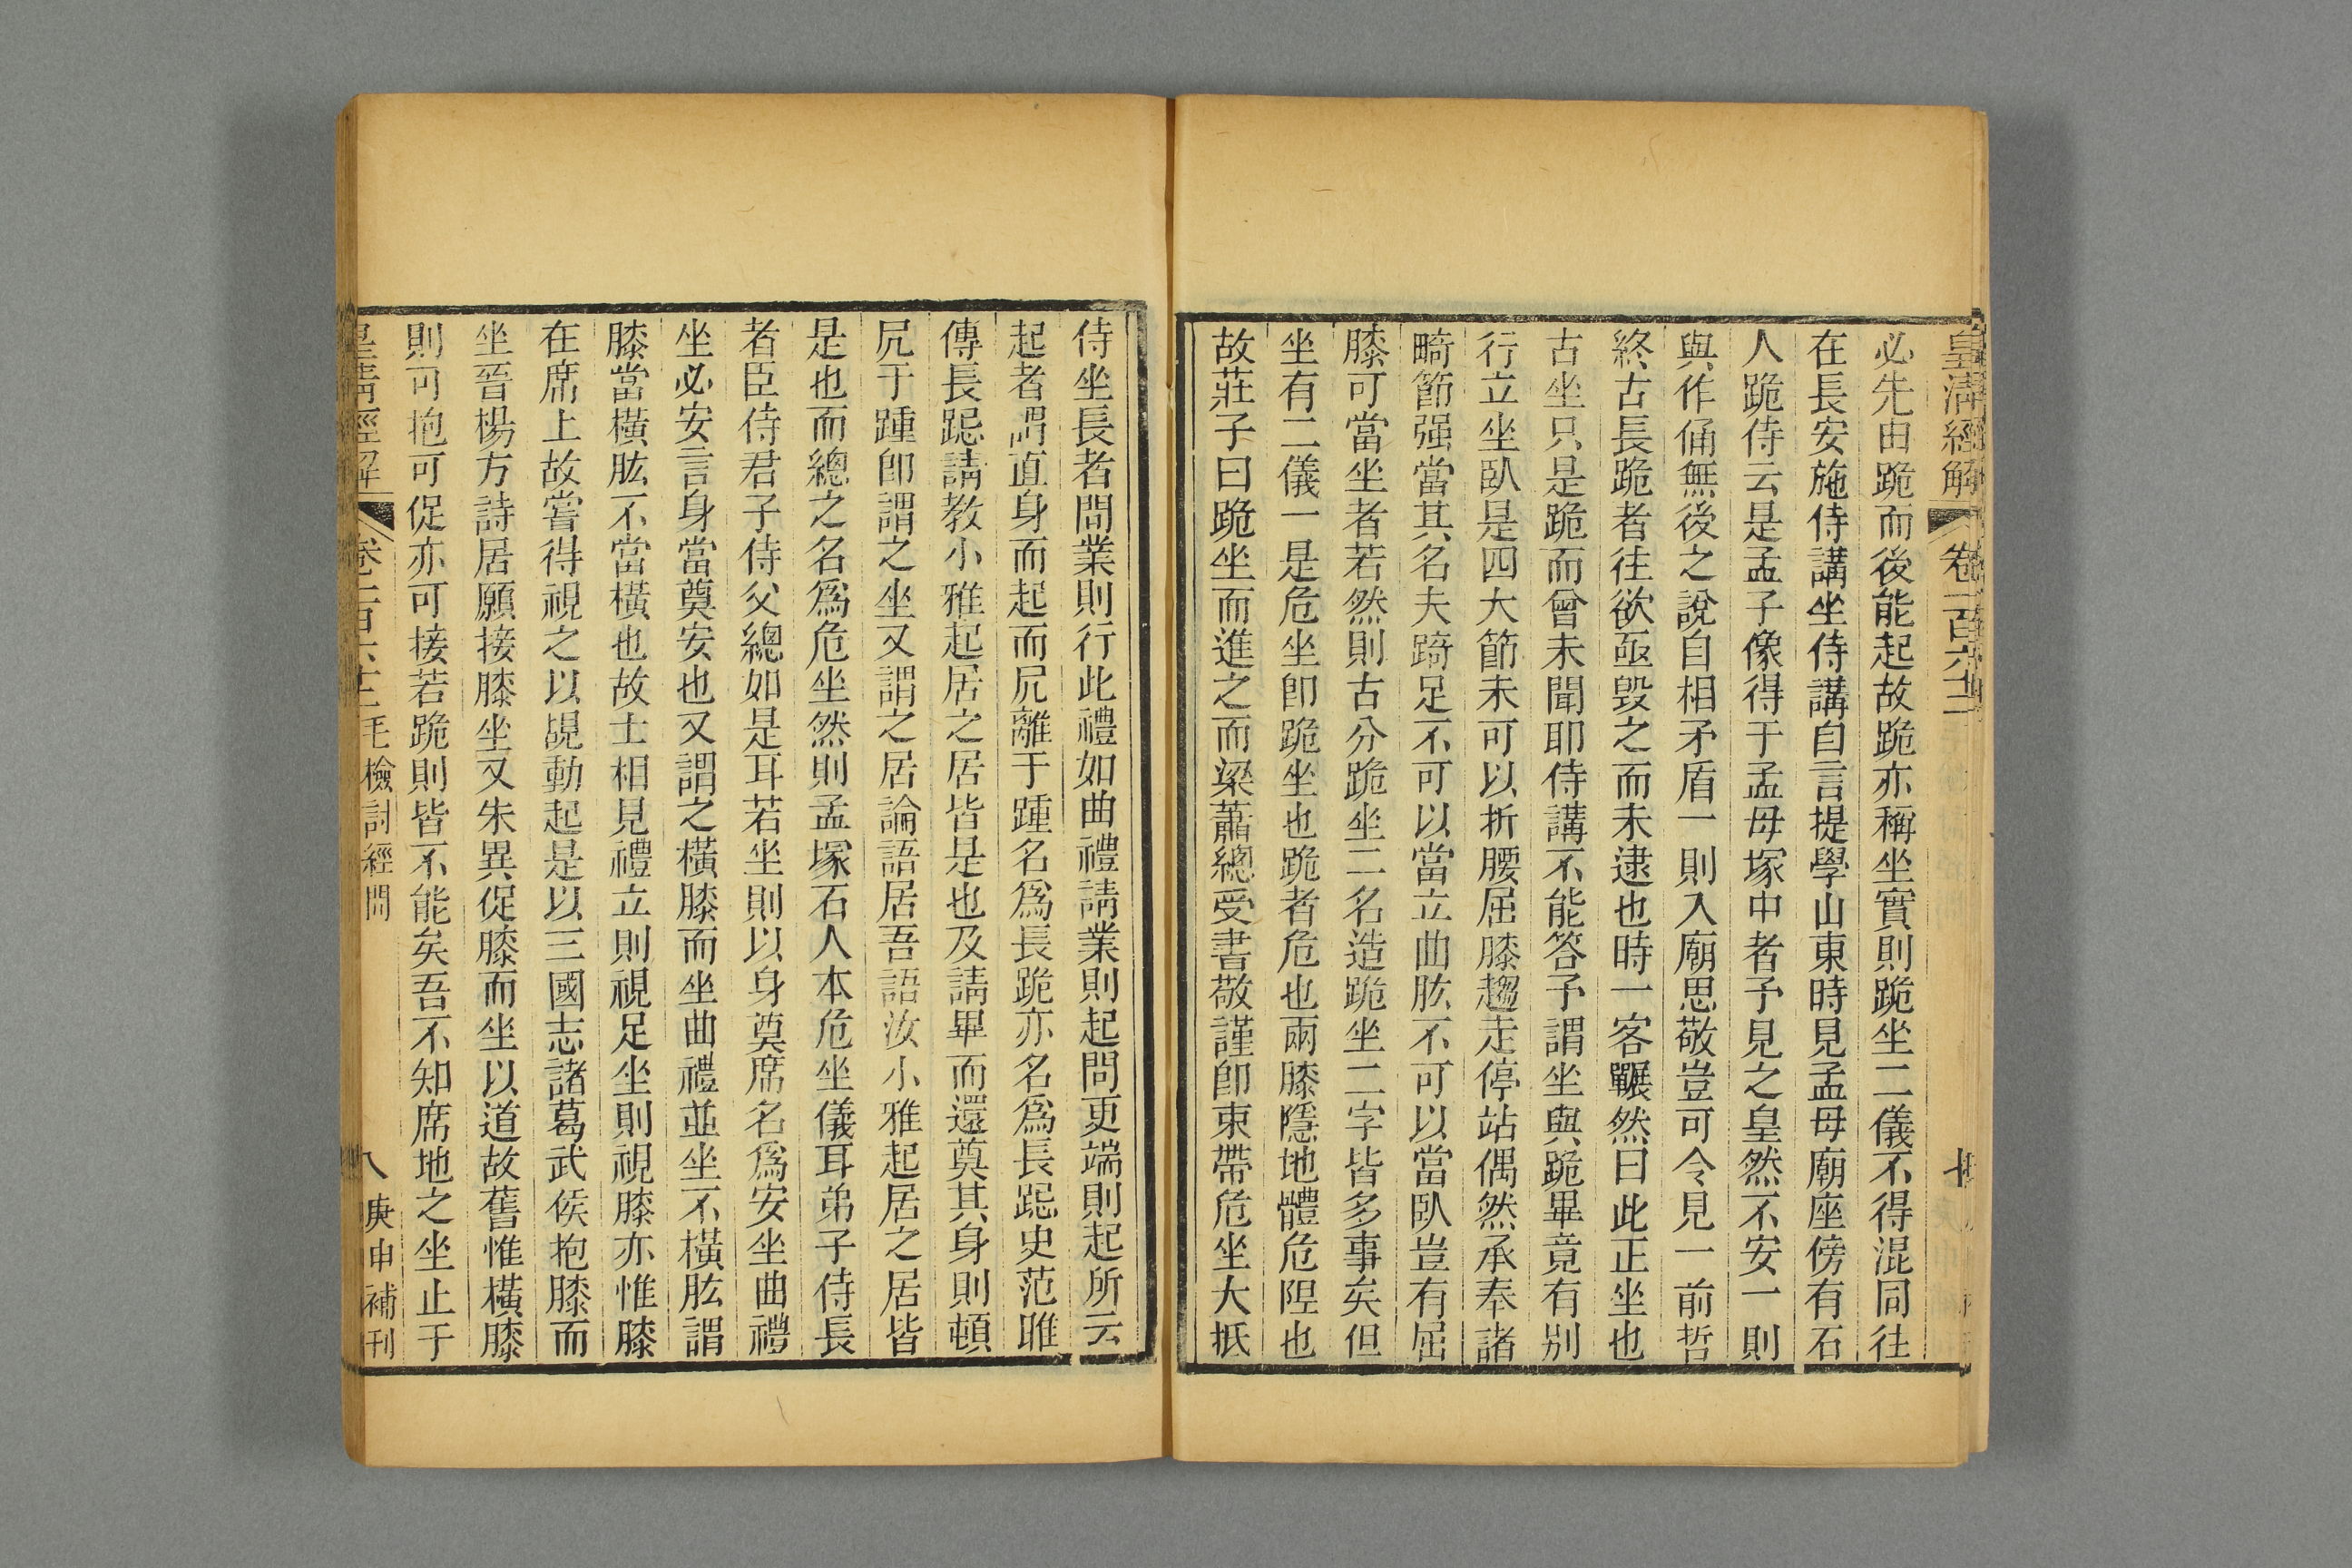 皇清經解 卷一百六十二 十
必先由跪而後能起故跪亦稱坐實則跪坐二儀不得混同往
在長安施侍講坐侍講自言提學山東時見孟母廟座傍有石
人跪侍云是孟子像得于孟母塚中者予見之皇然不安一則
與作俑無後之說自相矛盾一則入廟思敬豈可令見一前哲
終古長跪者往欲亟毀之而未逮也時一客囅然曰此正坐也
古坐只是跪而曾未聞耶侍講不能答予謂坐與跪畢竟有別
行立坐臥是四大節未可以折腰屈膝趨走停站偶然承奉諸
畸節强當其名夫踦足不可以當立曲肱不可以當臥豈有屈
膝可當坐者若然則古分跪坐二名造跪坐二字皆多事矣但
坐有二儀一是危坐卽跪坐也跪者危也兩膝隱地體危隉也
故莊子曰跪坐而進之而梁蕭總受書敬謹卽束帶危坐大抵
侍坐長者問業則行此禮如曲禮請業則起問更端則起所云
起者謂直身而起而尻離于踵名爲長跪亦名爲長跽史范雎
傳長跽請教小雅起居之居皆是也及請畢而還奠其身則頓
尻于踵卽謂之坐又謂之居論語居吾語汝小雅起居之居皆
是也而總之名爲危坐然則孟塚石人本危坐儀耳弟子侍長
者臣侍君子侍父總如是耳若坐則以身奠席名爲安坐曲禮
坐必安言身當奠安也又謂之橫膝而坐曲禮並坐不橫肱謂
膝當橫肱不當橫也故士相見禮立則視足坐則視膝亦惟膝
在席上故嘗得視之以覘動起是以三國志諸葛武侯抱膝而
坐晉楊方詩居願接膝坐又朱異促膝而坐以道故舊惟橫膝
則可抱可促亦可接若跪則皆不能矣吾不知席地之坐止于
皇清經解 卷一百六十二 毛檢討經問 八 庚申補刊